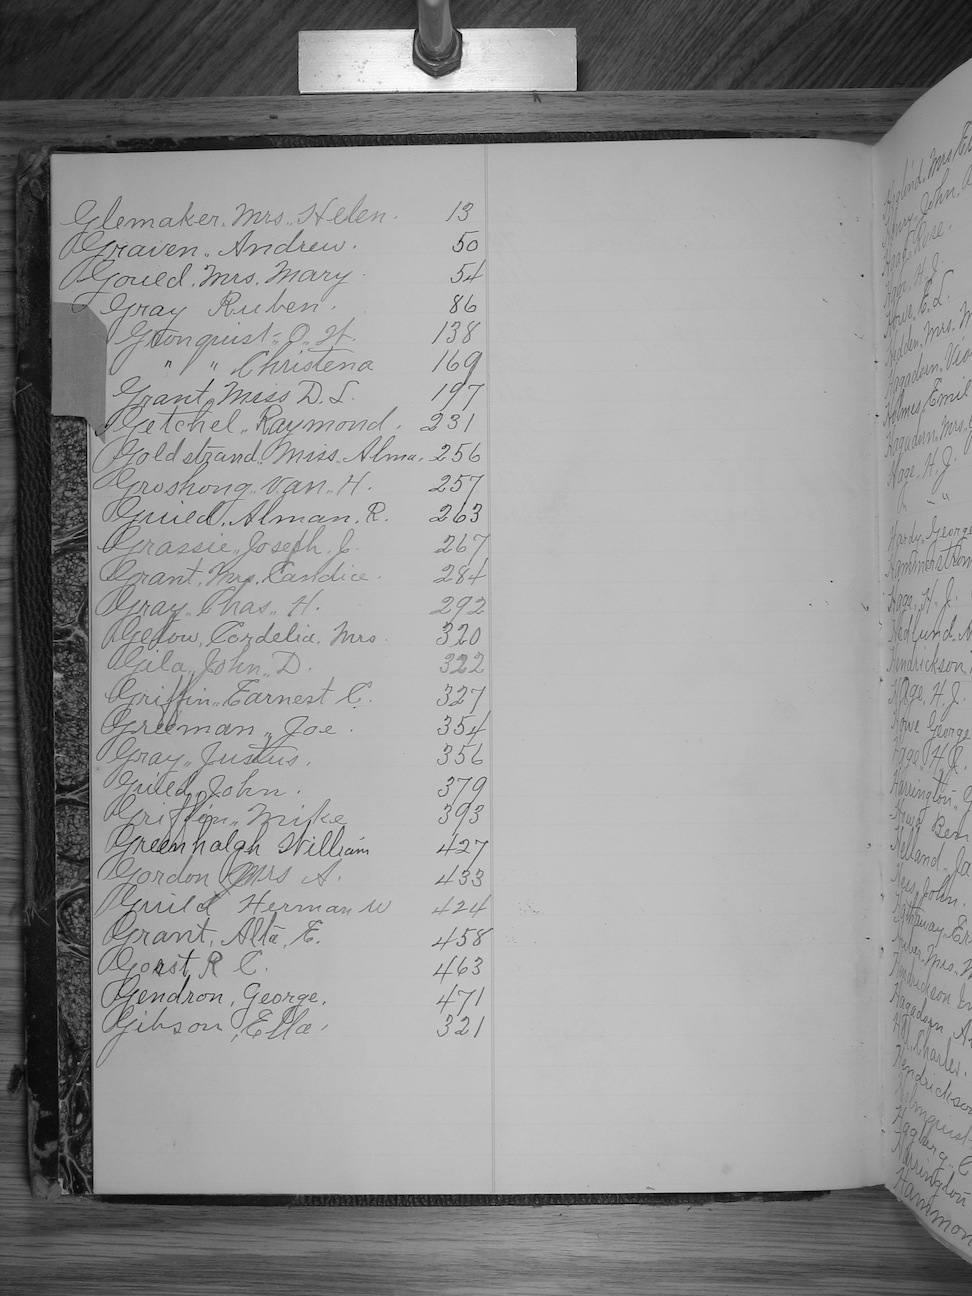 Glemaker. Mrs. Helen. 13
Graven, Andrew. 50
Gould. Mrs. Mary 54
Gray Ruben. 86
Gronquist, O. H. 138
" " Christena 169
Grant, Miss D. L. 197
Getchel, Raymond. 231
Goldstrand, Miss. Alma. 256
Groshong, Van, H. 257
Guild, Alman, R. 263
Grassie, Joseph, J. 267
Grant, Mrs. Candice. 284
Gray, Chas, H. 292
Gelow, Cordelia. Mrs. 320
Gila, John, D. 322
Griffin, Earnest C. 327
Greeman, Joe. 354
Gray, Justus. 356
Guild, John. 379
Griffin, Mike 393
Greenhalgh William 427
Gordon Mrs A. 433
Guild Herman W 424
Grant, Alta, E. 458
Gorst, R C. 463
Gendron, George. 471
Gibson, Ella. 321
Rose.
Hage, H. J.
Howe, E. L.
Hedden, Mrs.
Hagadorn,
Holmes, Emil
Hagadorn, Mrs.
Hage, H. J.
" - "
Hardy, George
Hammerstrom
Hage, H. J.
Hedlund,
Hendrickson
Hage, H. J.
Howe George
Hage, H. J.
Harrington,
Ben
Helland, Ja
John.
Hathaway,
Huber, Mrs.
Hendrickson
Hagadorn
Hill, Charles.
Hendrickson
Holmquist
Hagberg, C
Harrington
Hammon